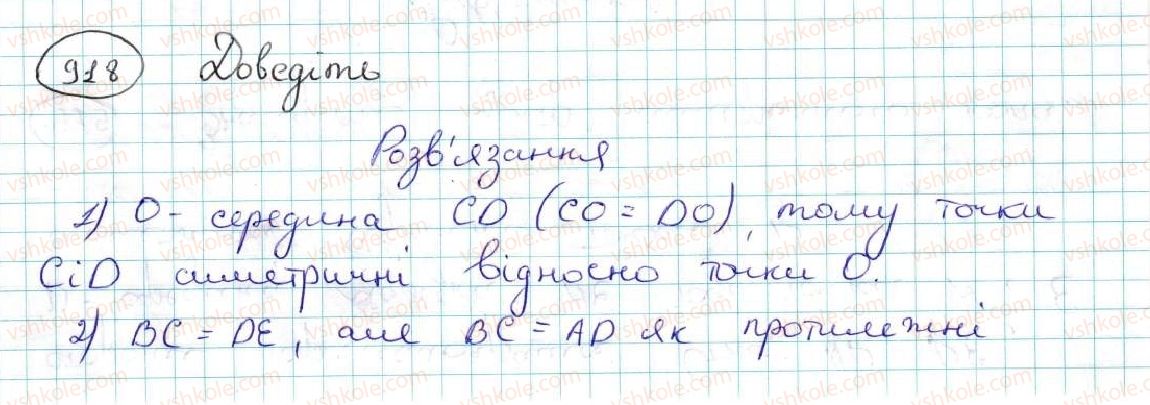 918 Доведіть
Розв'язання
1) О - середина CD (CO = DO), тому точки
C і D симетричні відносно точки О.
2) BC = DE, але BC = AD як протилежні